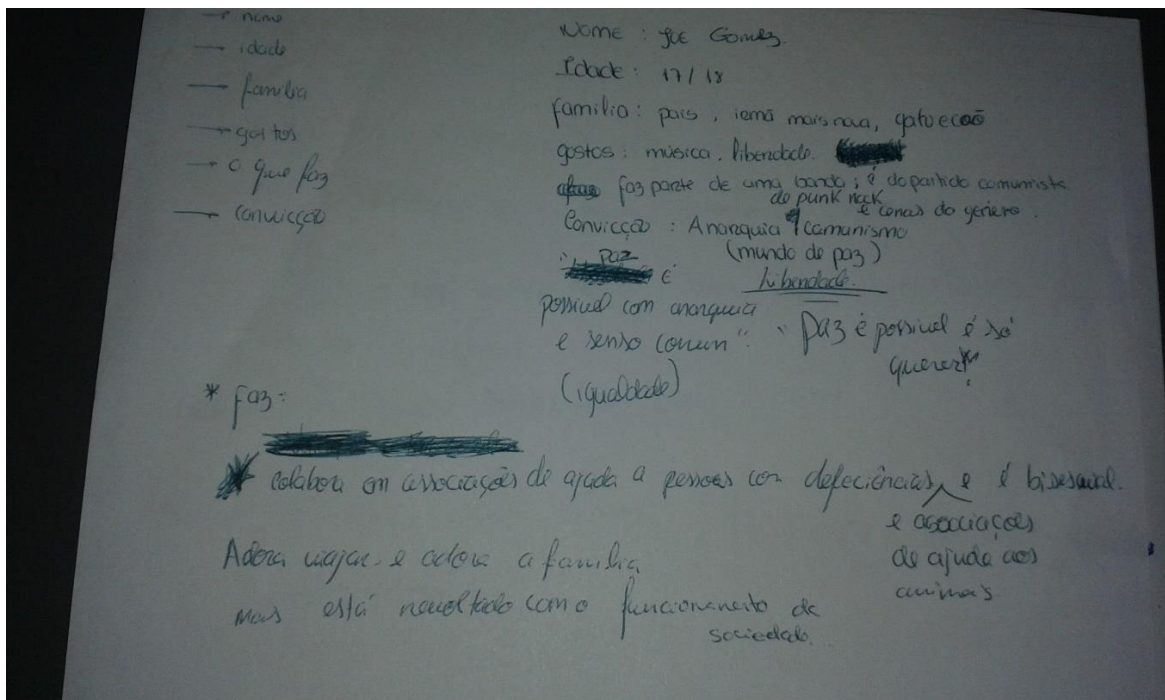 → nome
→ idade
→ familia
→ gostos
→ o que faz
→ convicção
Nome : Joe Gomez.
Idade : 17/18
família : pais, irmã mais nova, gato e cão
gostos : música, liberdade.
faz parte de uma banda ; é do partido comunista
de punk rock e cenas do género.
Convicção : Anarquia / comunismo
(mundo de paz)
Liberdade.
" Paz é
possivel com anarquia
e senso comum". " Paz é possivel é só
querer"!
(igualdade)
* faz:
* colabora em associações de ajuda a pessoas com defeciências, e é bisexual.
e associações
de ajuda aos
animais
Adora viajar e adora a familia
mas está revoltado com o funcionamento da
sociedade.